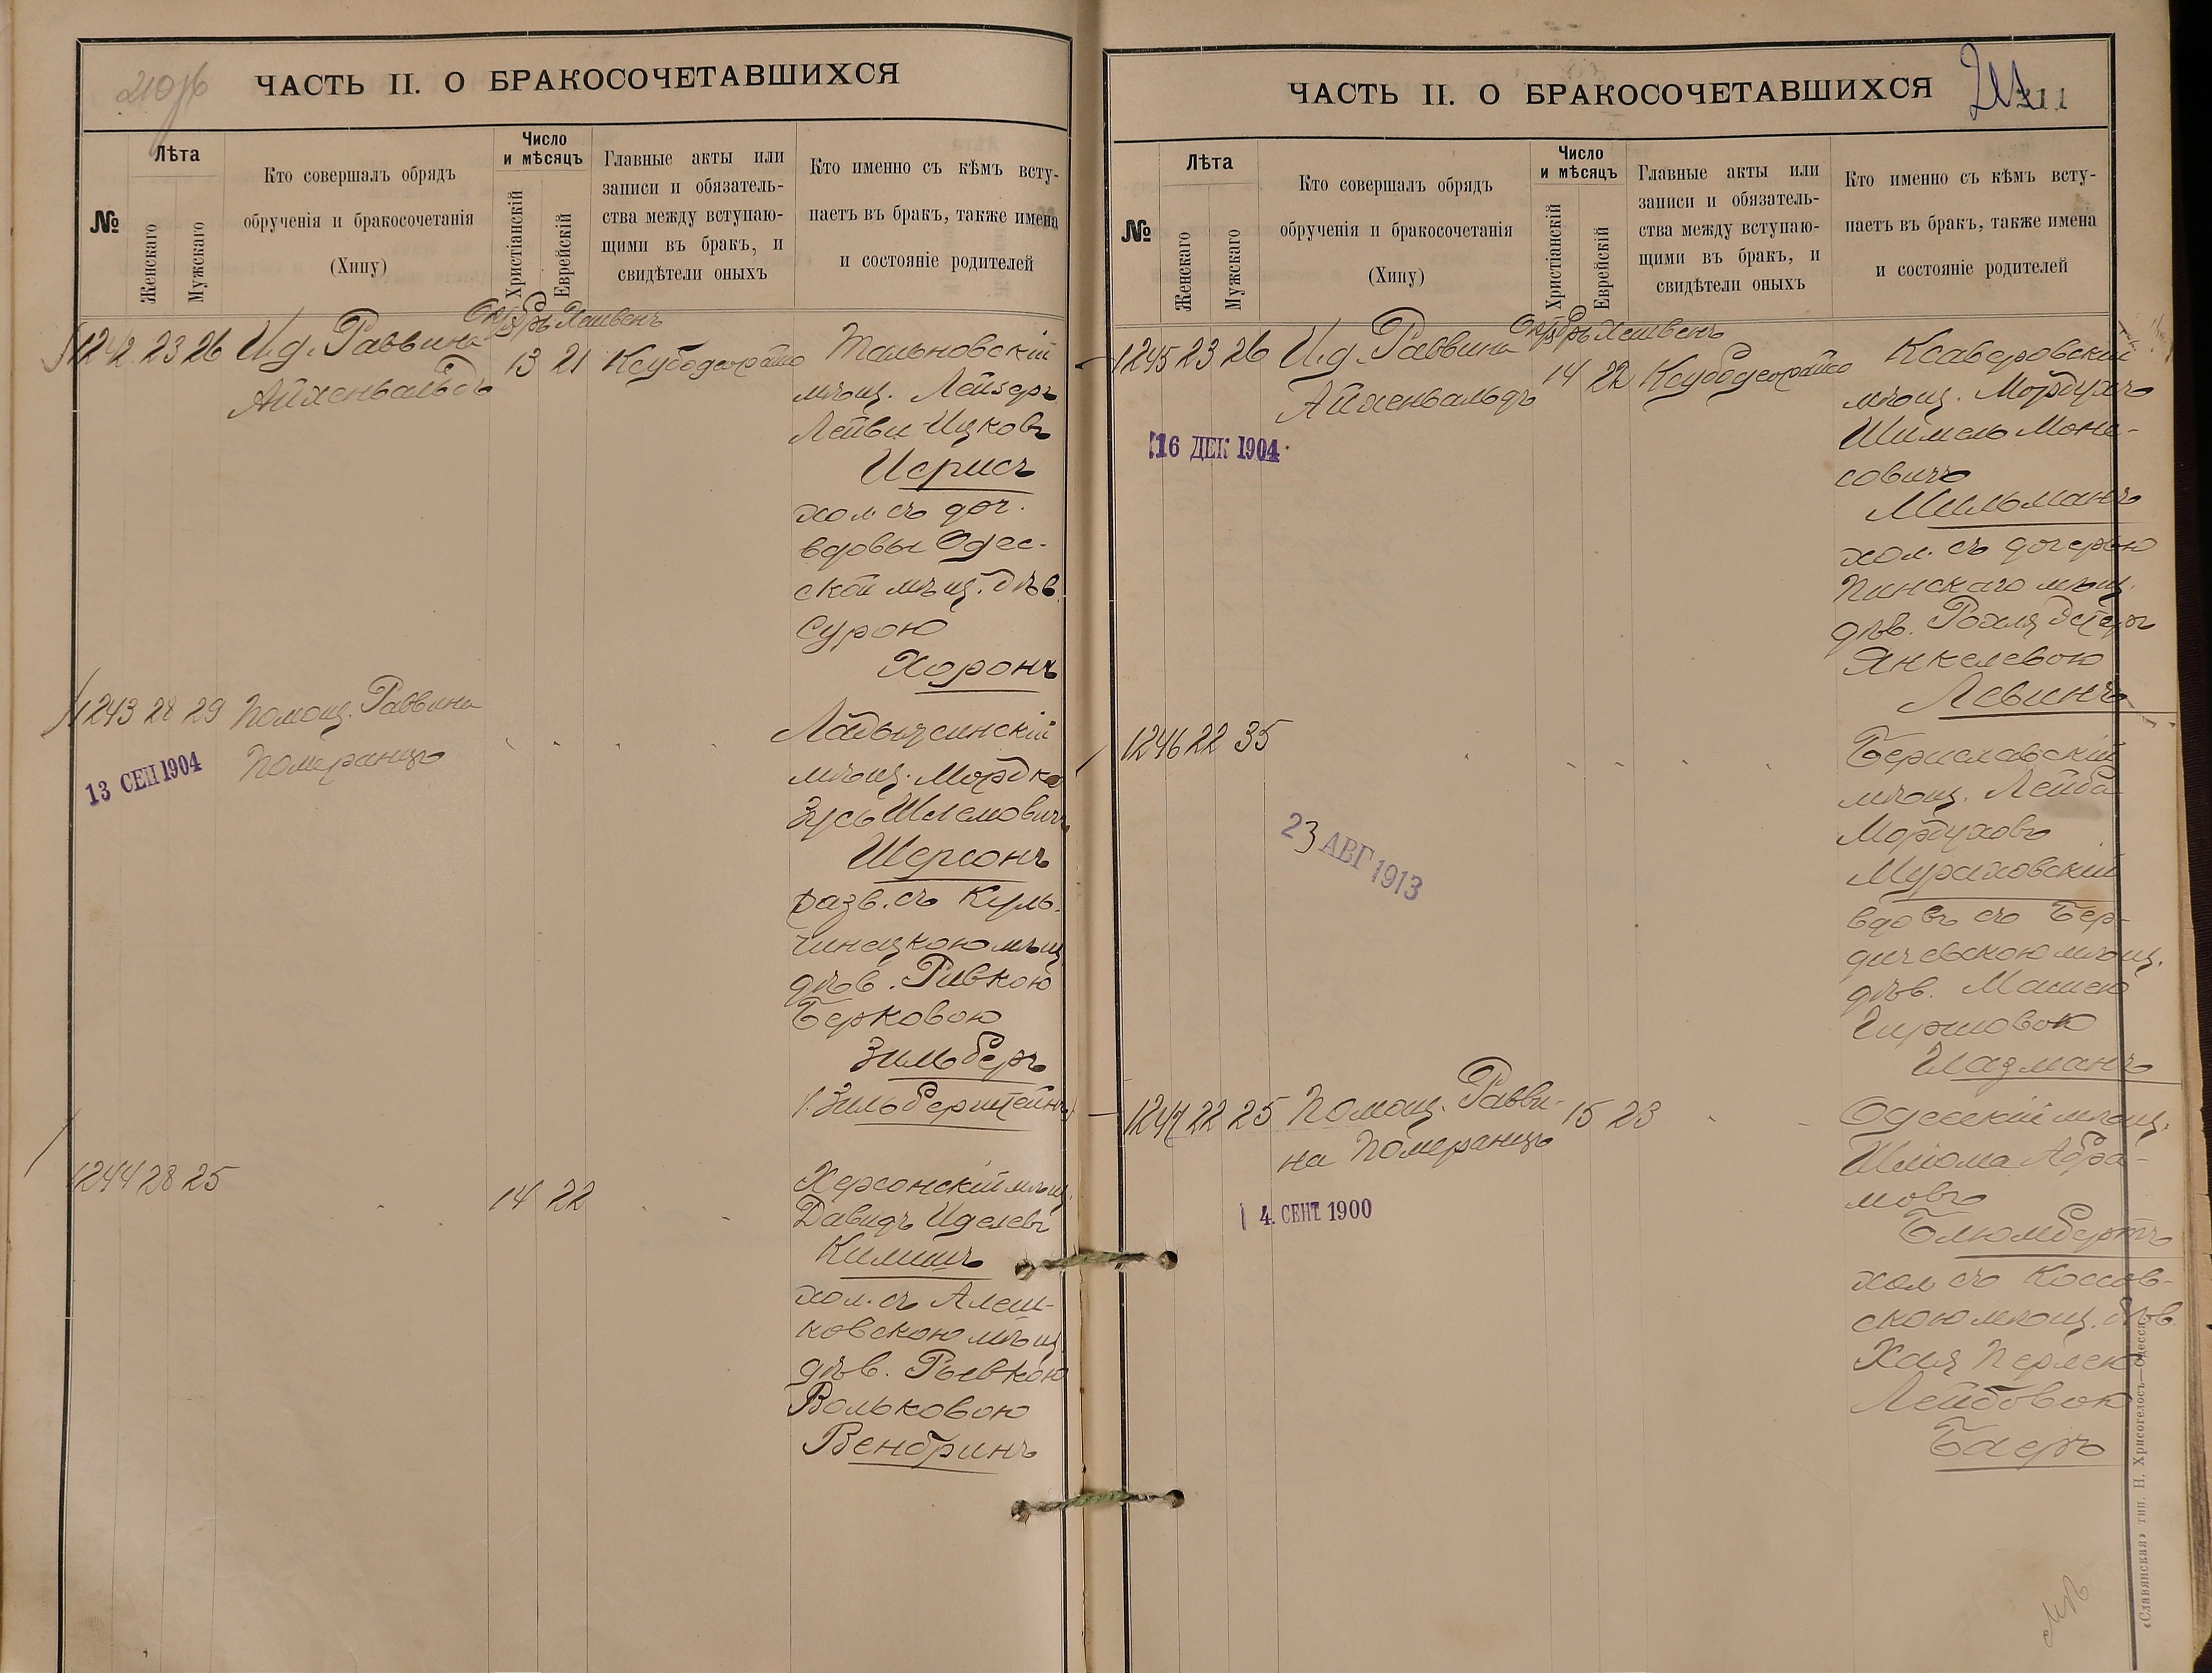 210 об
ЧАСТЬ II. О БРАКОСОЧЕТАВШИХСЯ
№
Лѣта
Женскаго
Мужскаго
Кто совершалъ обрядъ
обрученія и бракосочетанія
(Хипу)
Число
и мѣсяцъ
Христіанскій
Еврейскій
Главные акты или
записи и обязатель-
ства между вступаю-
щими въ бракъ, и
свидѣтели оныхъ
Кто именно съ кѣмъ всту-
паетъ въ бракъ, также имена
и состояніе родителей
Октябрь Хешвенъ
1242 23 26 И.д. Раввина 13 21 Ксубодеорайсо
Айхенвальдъ
Тальновскій
мѣщ. Лейзеръ
Лейви Ицковъ
Иерисъ
хол. съ доч.
вдовы Одес-
ской мѣщ. дѣв.
Сурою
Хоронъ
1243 28 29 Помощ. Раввина
Померанцъ
13 СЕН 1904
Ладыжинскій
мѣщ. Мордко
Зусь Шлемовичъ
Шерсонъ
разв. съ Куль-
чинецкою мѣщ.
дѣв. Ривкою
Берковою
Зильберъ
(Зильберштейнъ)
1244 28 25 14 22
Херсонскій мѣщ.
Давидъ Иделевъ
Килишъ
хол. съ Алеш-
ковскою мѣщ.
дѣв. Рывкою
Вольковою
Вендринъ
ЧАСТЬ II. О БРАКОСОЧЕТАВШИХСЯ
211
№
Лѣта
Женскаго
Мужскаго
Кто совершалъ обрядъ
обрученія и бракосочетанія
(Хипу)
Число
и мѣсяцъ
Христіанскій
Еврейскій
Главные акты или
записи и обязатель-
ства между вступаю-
щими въ бракъ, и
свидѣтели оныхъ
Кто именно съ кѣмъ всту-
паетъ въ бракъ, также имена
и состояніе родителей
Октябрь Хешвенъ
1245 23 26 И.д. Раввина 14 22 Ксубодеорайсо
Айхенвальдъ
16 ДЕК 1904
Ксаверовскій
мѣщ. Мордухъ
Шимель Моне-
совичъ
Мильманъ
хол. съ дочерью
Пинскаго мѣщ.
дѣв. Рохля Эстеръ
Янкелевою
Левинъ
1246 22 35
23 АВГ 1913
Бериславскій
мѣщ. Лейба
Мордуховъ
Мураховскій
вдовъ съ Бер-
дичевскою мѣщ.
дѣв. Машею
Гиршовою
Глазманъ
1247 22 25 Помощ. Равви- 15 23
на Померанцъ
4. СЕНТ. 1900
Одесскій мѣщ.
Шлёма Абра-
мовъ
Блюмбергъ
хол съ Коссов-
скою мѣщ. дѣв.
Хая Перлею
Лейбовою
Баеръ
«Славянская» тип. Н. Хрисогелосъ—Одесса